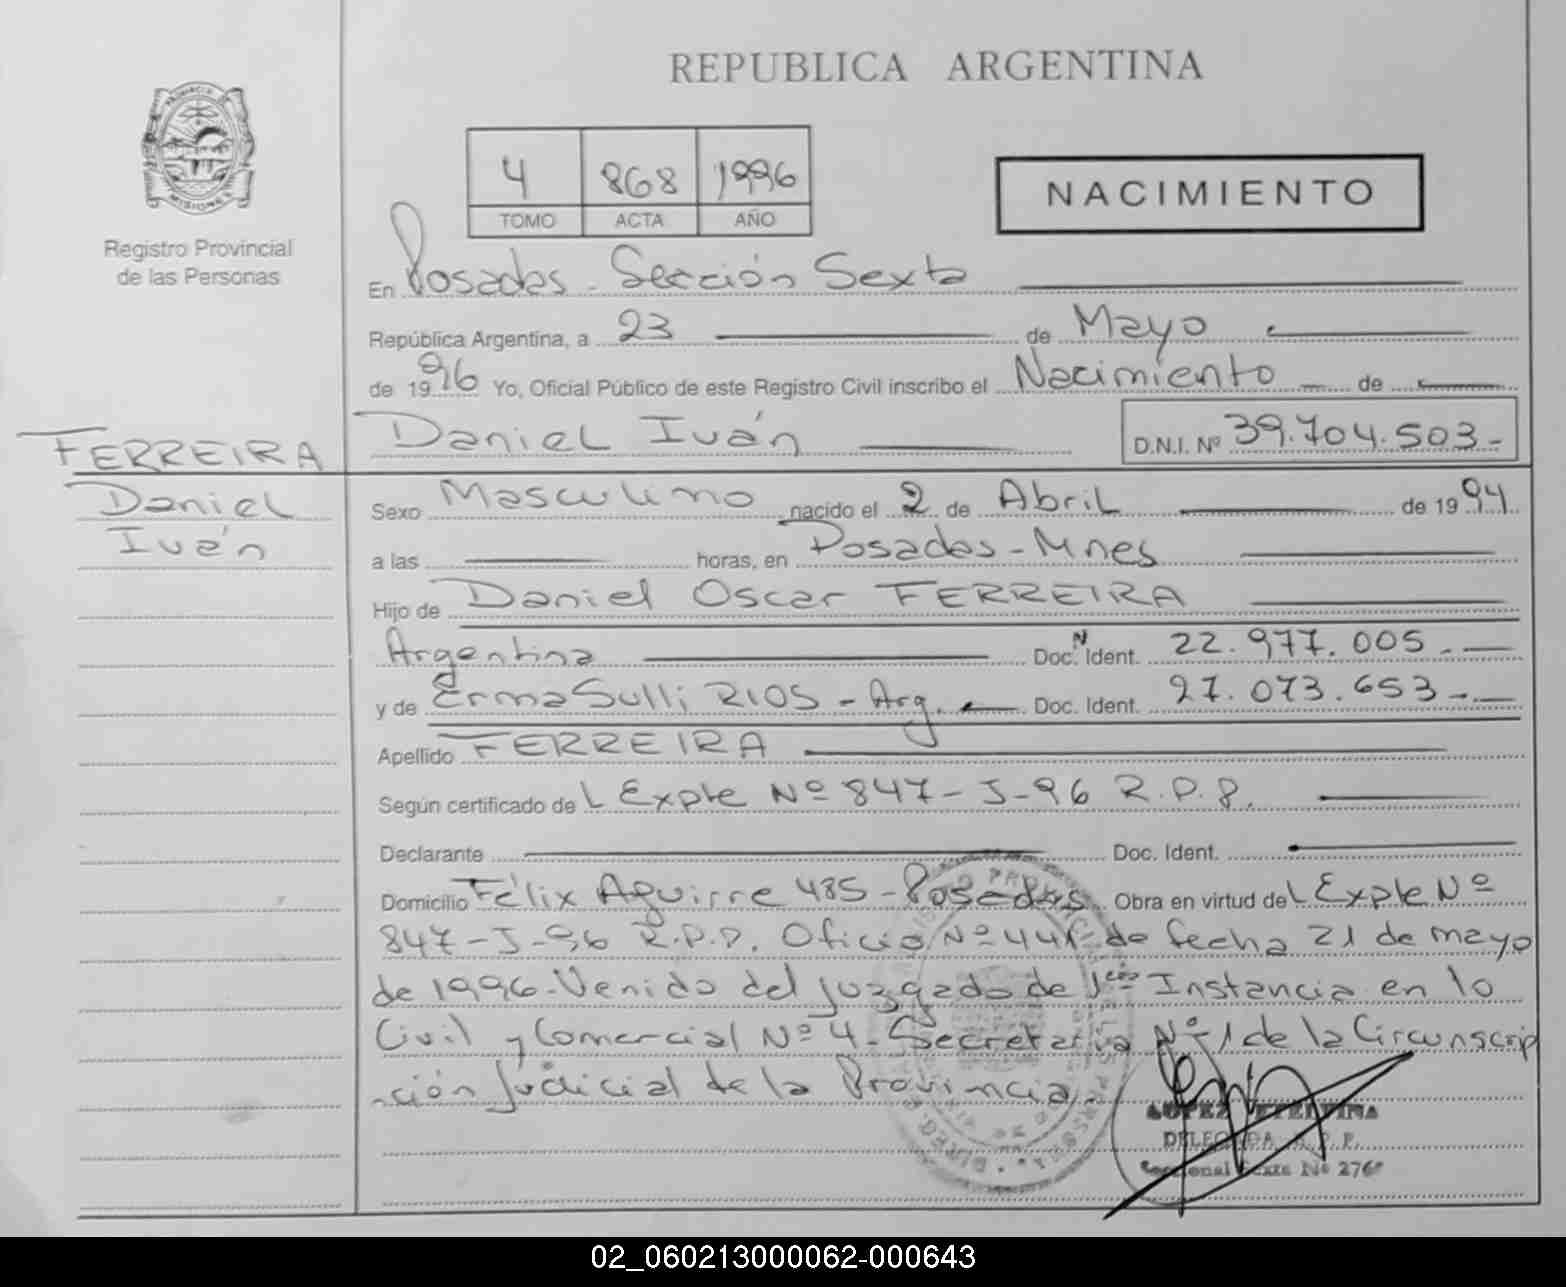 REPUBLICA ARGENTINA
4 868 1996
TOMO ACTA AÑO
NACIMIENTO
PROVINCIA DE MISIONES
Registro Provincial
de las Personas
En Posadas - Sección Sexta
República Argentina, a 23 de Mayo
de 1996 Yo, Oficial Público de este Registro Civil inscribo el Nacimiento de
Daniel Iván D.N.I. Nº 39.704.503.-
FERREIRA
Daniel
Iván
Sexo Masculino nacido el 2 de Abril de 1994
a las horas, en Posadas - Mnes
Hijo de Daniel Oscar FERREIRA
Argentina Doc. N Ident. 22.977.005.-
y de Erma Sulli RIOS - Arg. Doc. Ident. 27.073.653.-
Apellido FERREIRA
Según certificado de L Expte Nº 847-J-96 R.P.P.
Declarante Doc. Ident.
Domicilio Félix Aguirre 485 - Posadas Obra en virtud de L Expte Nº
847-J-96 R.P.P. Oficio Nº 441 de fecha 21 de mayo
de 1996 - Venido del juzgado de 1era Instancia en lo
Civil y Comercial Nº 4 - Secretaría Nº 1 de la Circunscrip
-ción Judicial de la Provincia.
LOPEZ ETELVINA
DELEGADA R.P.P.
Seccional Sexta Nº 276
02_060213000062-000643